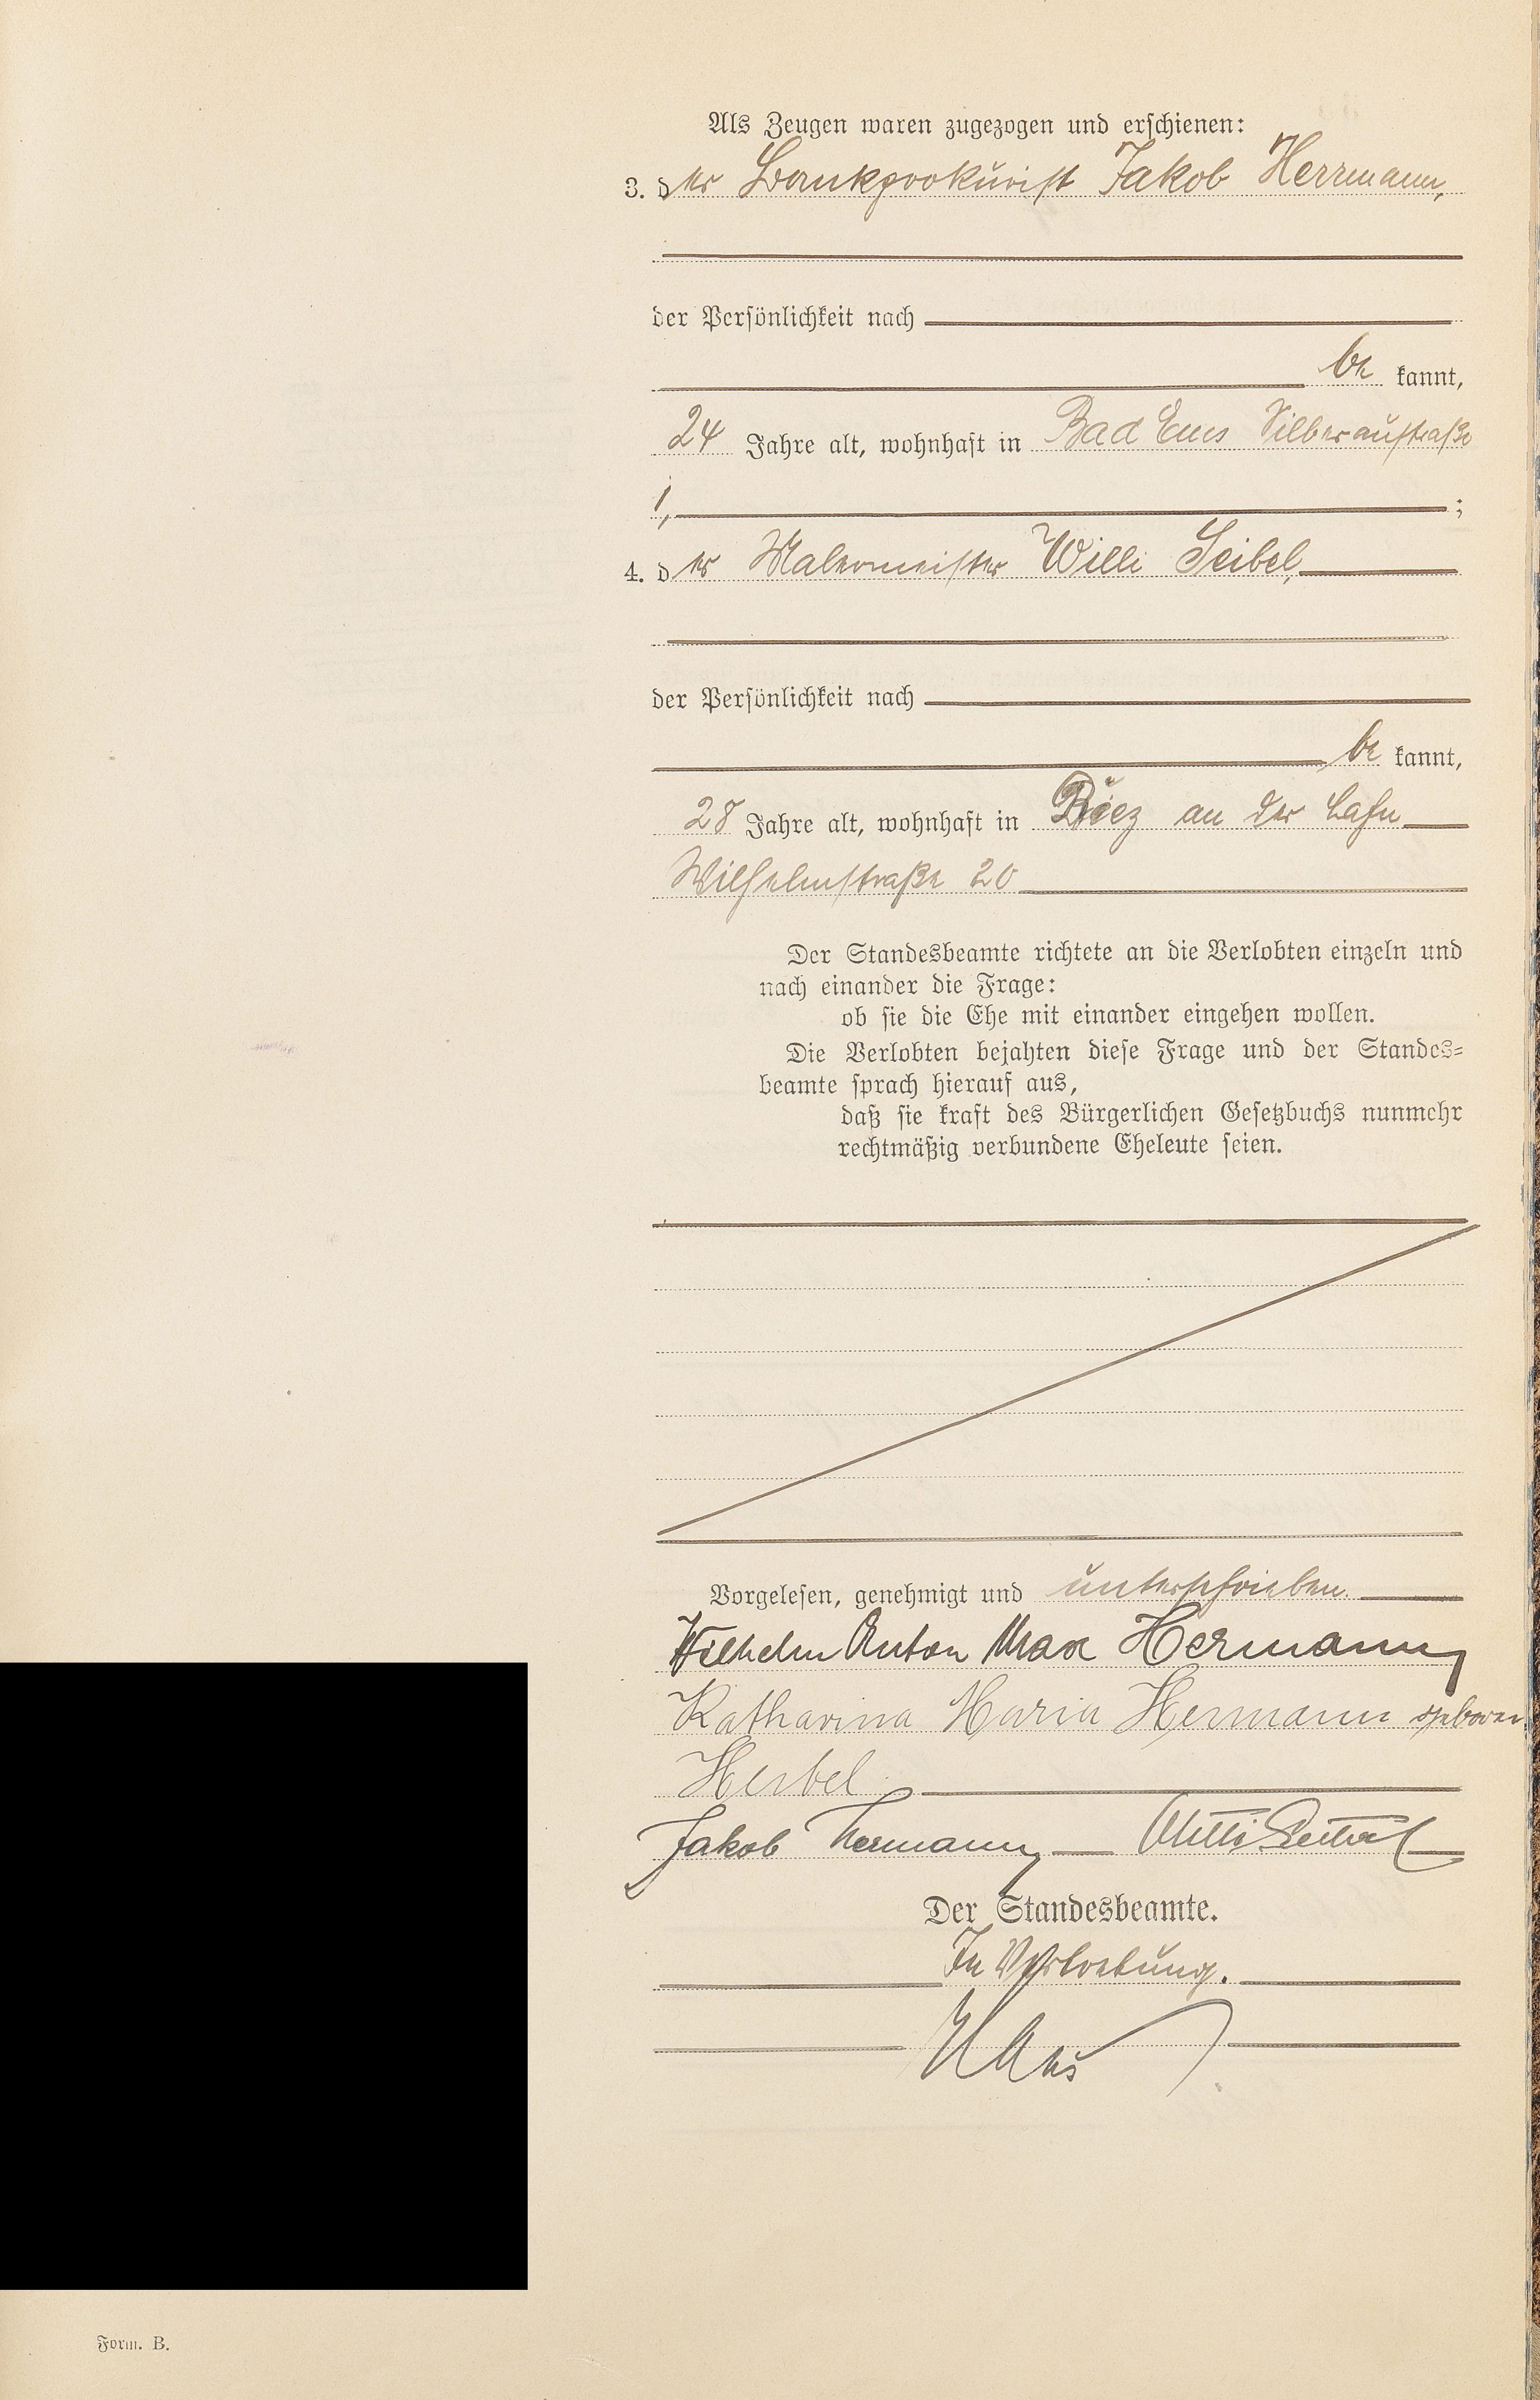 Als Zeugen waren zugezogen und erschienen:
3. der Bankprokurist Jakob Herrmann,
der Persönlichkeit nach
be kannt,
24 Jahre alt, wohnhaft in Bad Ems Silberaustraße
1, ;
4. der Malermeister Willi Seibel,
der Persönlichkeit nach
be kannt,
28 Jahre alt, wohnhaft in Diez an der Lahn
Wilhelmstraße 20
Der Standesbeamte richtete an die Verlobten einzeln und
nach einander die Frage:
ob sie die Ehe mit einander eingehen wollen.
Die Verlobten bejahten diese Frage und der Standes-
beamte sprach hierauf aus,
daß sie kraft des Bürgerlichen Gesetzbuchs nunmehr
rechtmäßig verbundene Eheleute seien.
Vorgelesen, genehmigt und unterschrieben.
Wilhelm Anton Max Hermann
Katharina Maria Hermann geboren
Herbel
Jakob Hermann Willi Seibel
Der Standesbeamte.
In Vertretung.
Form. B.